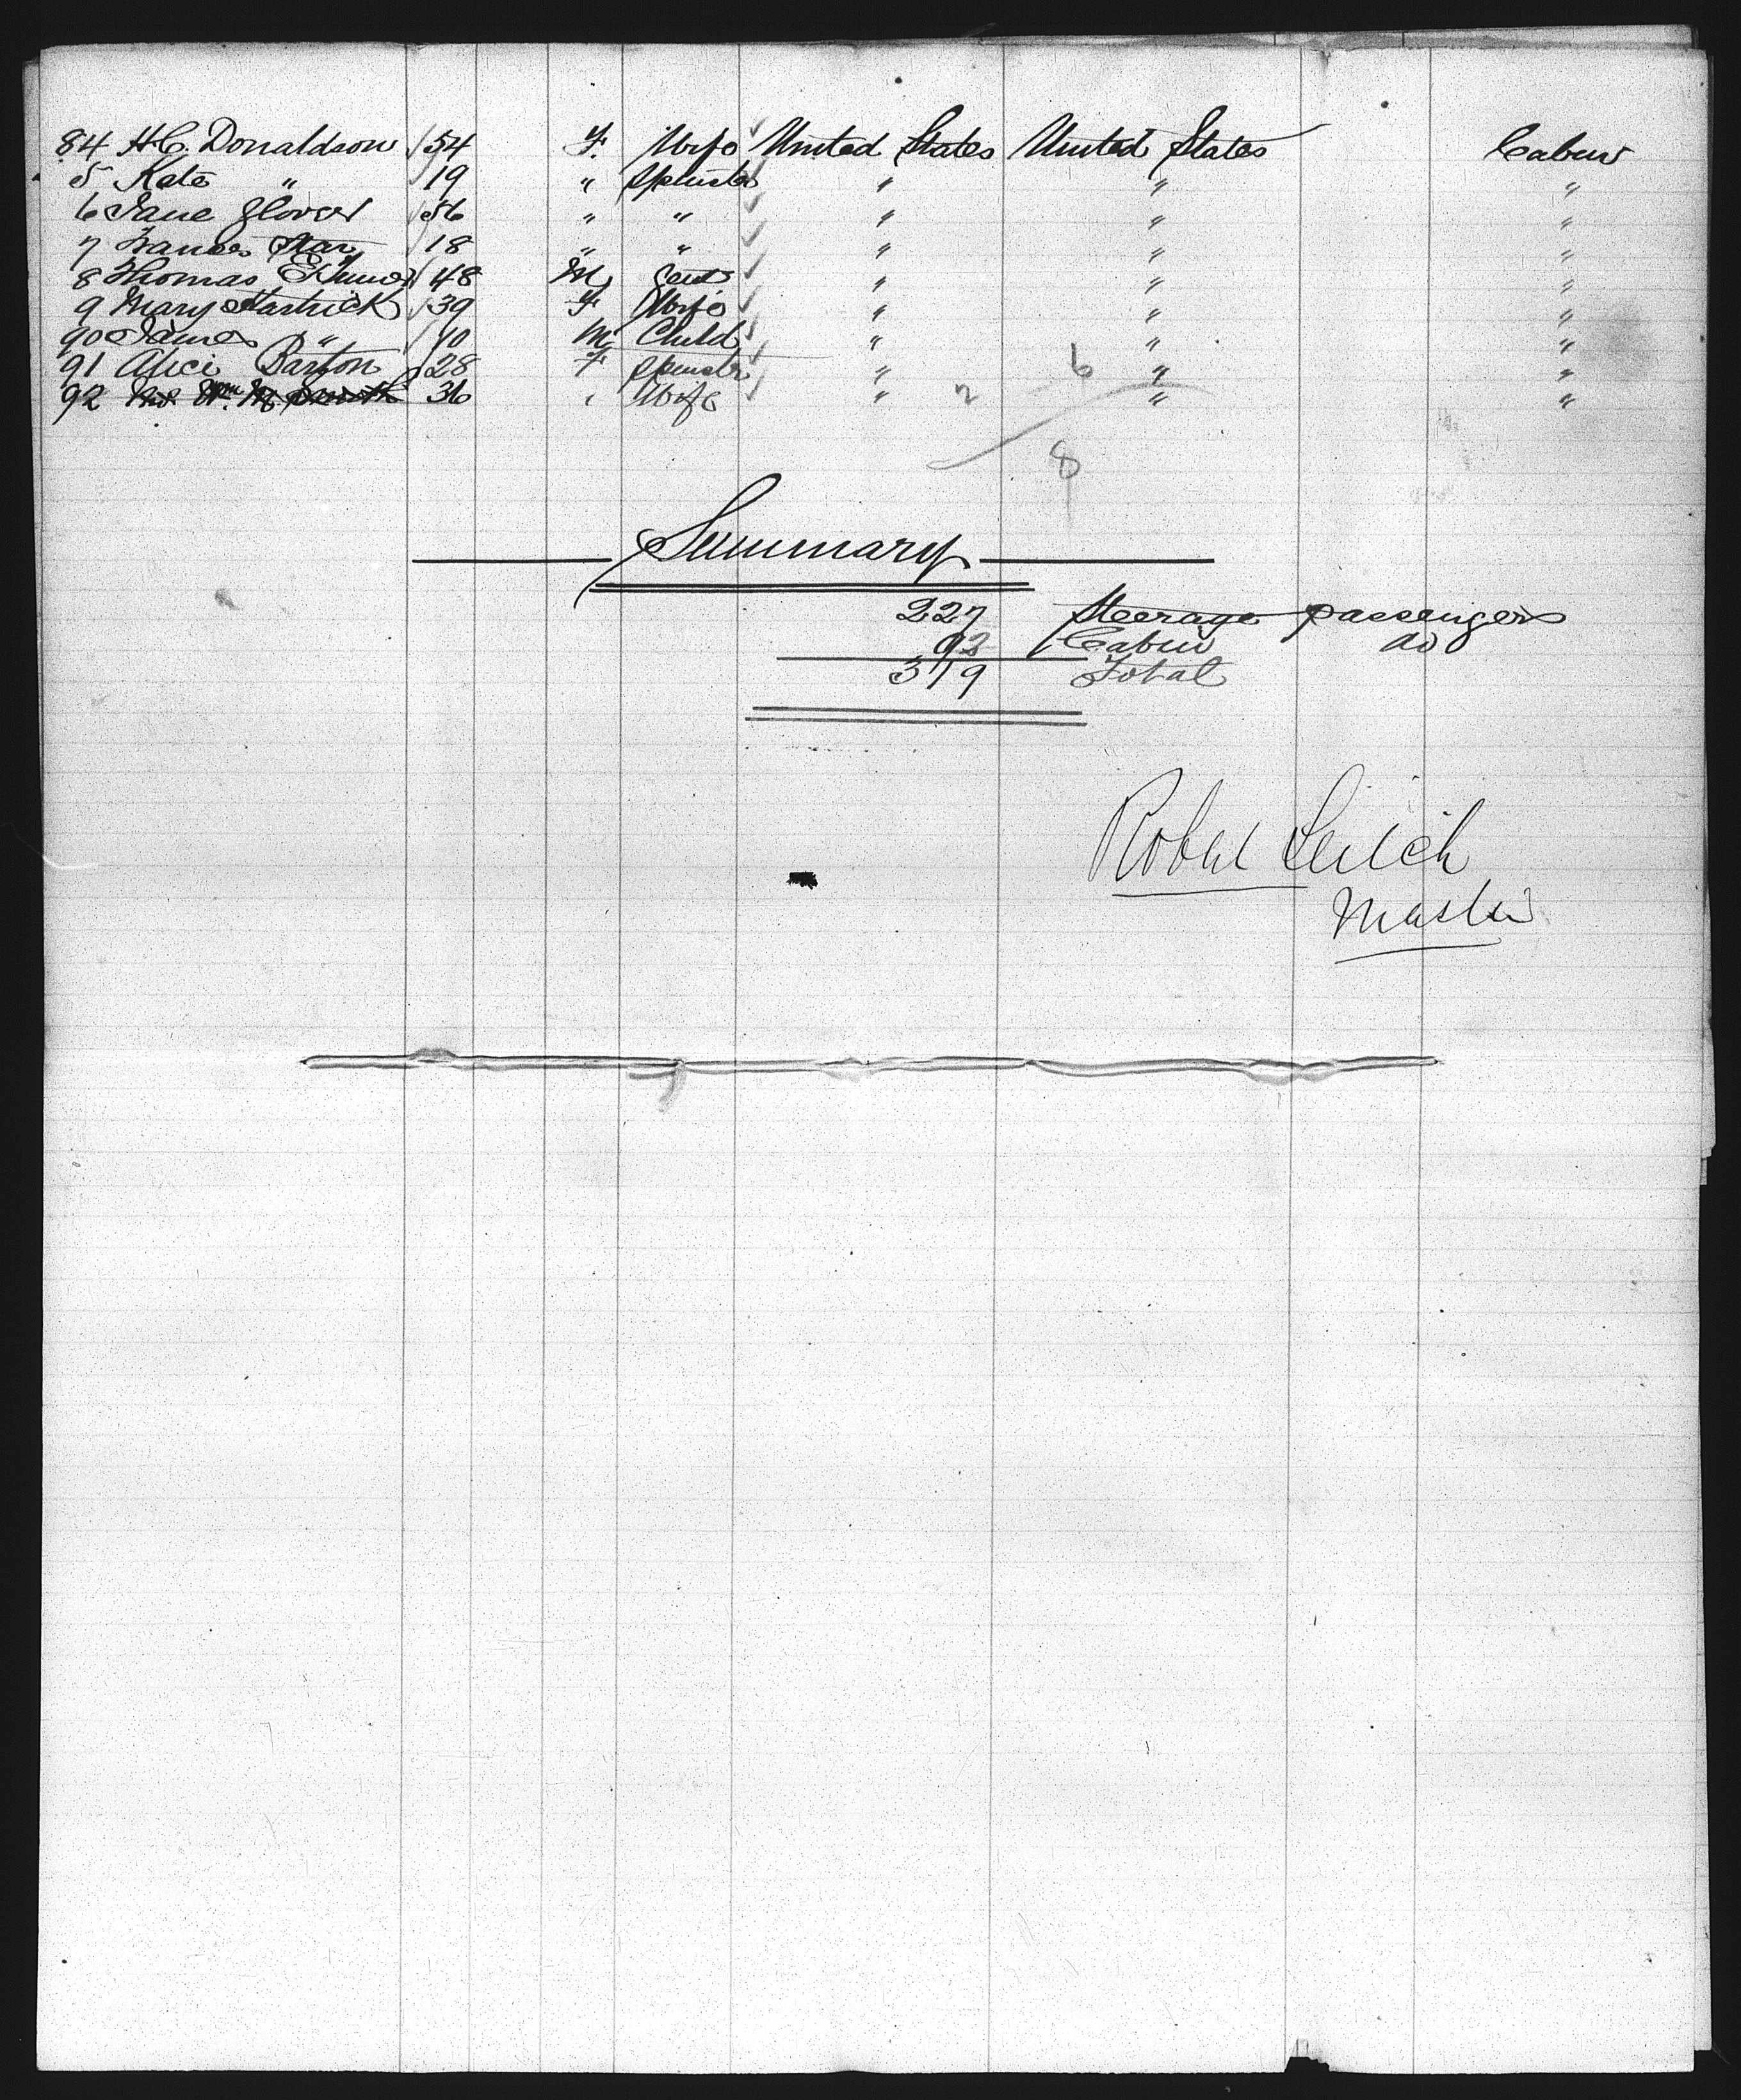 84 H.C. Donaldson 54 F. Wife United States United States Cabin
5 Kate " 19 " Spinster " " "
6 Jane Glover 56 " " " " "
7 Frances Star 18 " " " " "
8 Thomas 48 M Gent " " "
9 Mary 39 F Wife " " "
90 James " 10 M Child " " "
91 Alice Barton 28 F Spinstr " 6 " "
92 36 " Wife " 2 " "
8
Summary
227 Steerage passengers
92 Cabin do
319 Total
Robert Leitch
Master